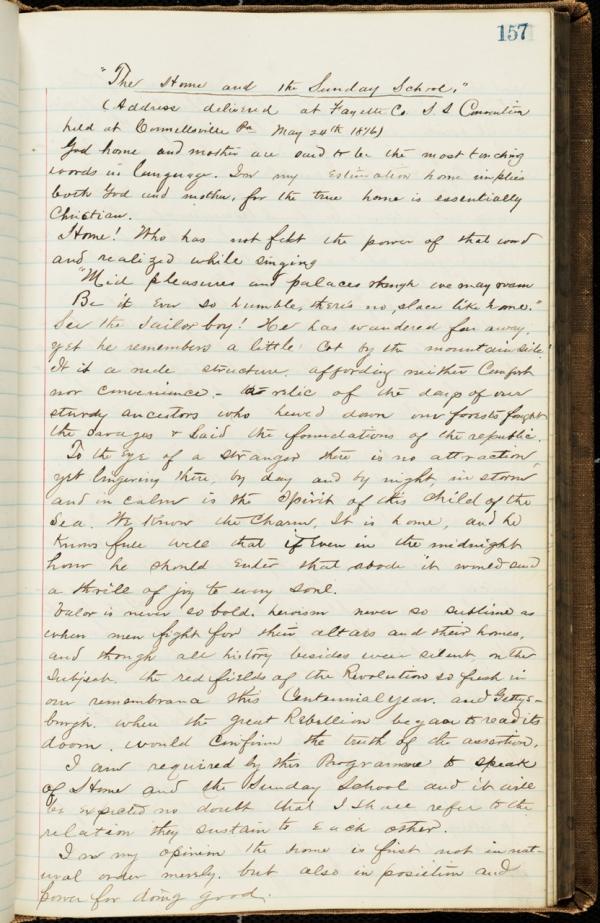 157
"The Home and the Sunday School."
(Address delivered at Fayette Co. S. S Convention
held at Connellsville Pa May 24th 1876)
God home and mother are said to be the most touching
words in language. In my estimation home implies
both God and mother, for the true home is essentially
Christian.
Home! Who has not felt the power of that word
and realized while singing
"Mid pleasures and palaces though we may roam
Be it Ever so humble, there's no place like home."
See the sailor boy! He has wandered far away,
yet he remembers a little cot by the mountain side!
It is a rude structure, affording neither Comfort
nor convenience - a relic of the days of our
sturdy ancestors who hewed down our forests fought
the savages & laid the foundations of the republic.
To the Eye of a stranger there is no attraction,
yet lingering there, by day and by night, in storm
and in calm is the Spirit of this child of the
Sea. We Know the Charm, It is home, and he
Knows full well that if Even in the midnight
hour he should Enter that abode it would send
a thrill of joy to every soul.
Valor is never so bold, heroism never so sublime as
when men fight for their altars and their homes,
and though all history besides were silent, on the
Subject, the red fields of the Revolution so fresh in
our remembrance this Centennial year, and Gettys-
burgh, where the great Rebellion began to read its
doom, would confirm the truth of the assertion.
I am required by this Programme to speak
of Home and the Sunday School and it will
be expected no doubt that I shall refer to the
relation they sustain to Each other.
In my opinion the home is first not in nat-
ural order merely, but also in position and
power for doing good.